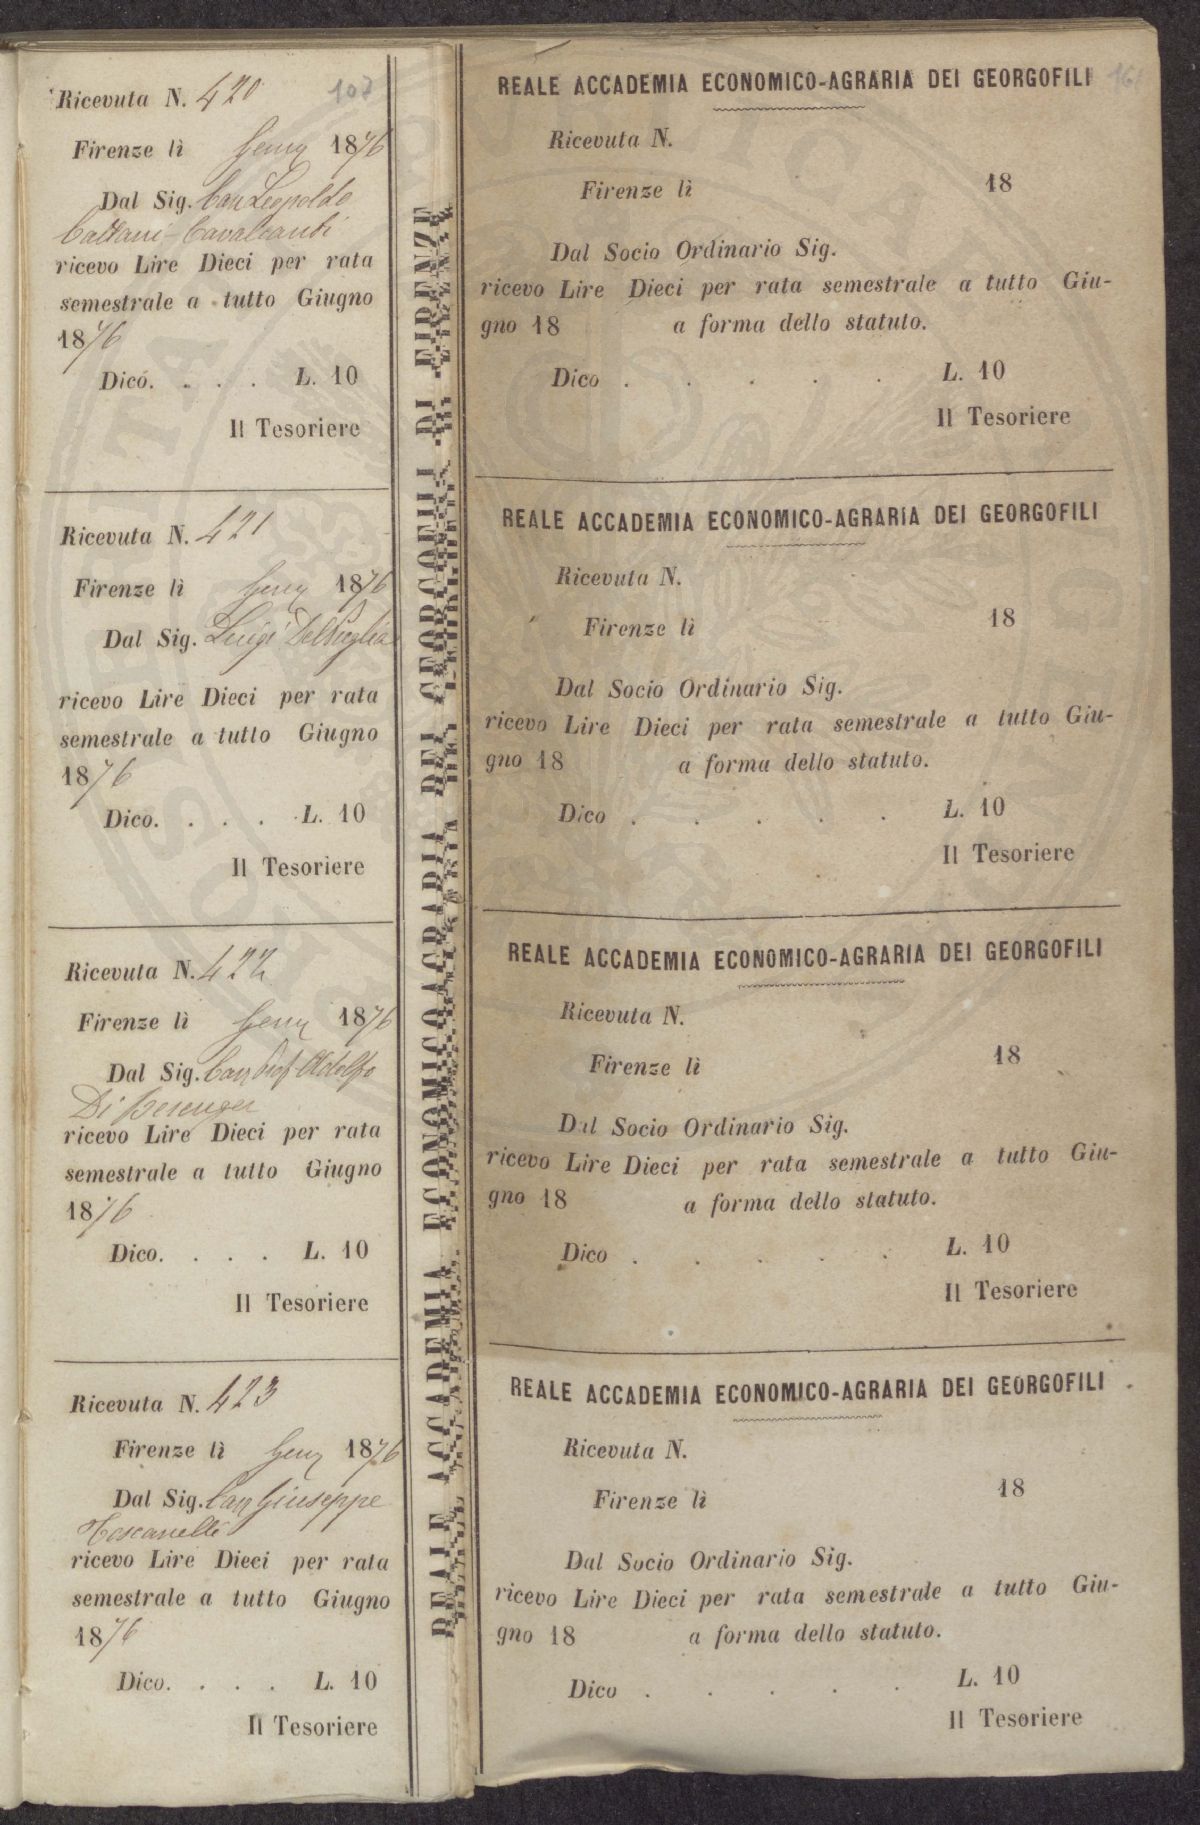 Ricevuta N. 420
107
Firenze lì Genn 1876
Dal Sig. Cav Leopoldo
Cattani-Cavalcanti
ricevo Lire Dieci per rata
semestrale a tutto Giugno
1876
Dico. . . . L. 10
Il Tesoriere
Ricevuta N. 421
Firenze lì Genn 1876
Dal Sig. Luigi Del Puglia
ricevo Lire Dieci per rata
semestrale a tutto Giugno
1876
Dico. . . . L. 10
Il Tesoriere
Ricevuta N. 422
Firenze lì Genn 1876
Dal Sig. Cav Prof Adolfo
Di Berenger
ricevo Lire Dieci per rata
semestrale a tutto Giugno
1876
Dico. . . . L. 10
Il Tesoriere
Ricevuta N. 423
Firenze lì Genn 1876
Dal Sig. Cav Giuseppe
Toscanelli
ricevo Lire Dieci per rata
semestrale a tutto Giugno
1876
Dico. . . . L. 10
Il Tesoriere
REALE ACCADEMIA ECONOMICO AGRARIA DEI GEORGOFILI DI FIRENZE
REALE ACCADEMIA ECONOMICO-AGRARIA DEI GEORGOFILI
Ricevuta N.
Firenze lì 18
Dal Socio Ordinario Sig.
ricevo Lire Dieci per rata semestrale a tutto Giu-
gno 18 a forma dello statuto.
Dico . . . . . L. 10
Il Tesoriere
REALE ACCADEMIA ECONOMICO-AGRARIA DEI GEORGOFILI
Ricevuta N.
Firenze lì 18
Dal Socio Ordinario Sig.
ricevo Lire Dieci per rata semestrale a tutto Giu-
gno 18 a forma dello statuto.
Dico . . . . . L. 10
Il Tesoriere
REALE ACCADEMIA ECONOMICO-AGRARIA DEI GEORGOFILI
Ricevuta N.
Firenze lì 18
Dal Socio Ordinario Sig.
ricevo Lire Dieci per rata semestrale a tutto Giu-
gno 18 a forma dello statuto.
Dico . . . . . L. 10
Il Tesoriere
REALE ACCADEMIA ECONOMICO-AGRARIA DEI GEORGOFILI
Ricevuta N.
Firenze lì 18
Dal Socio Ordinario Sig.
ricevo Lire Dieci per rata semestrale a tutto Giu-
gno 18 a forma dello statuto.
Dico . . . . . L. 10
Il Tesoriere